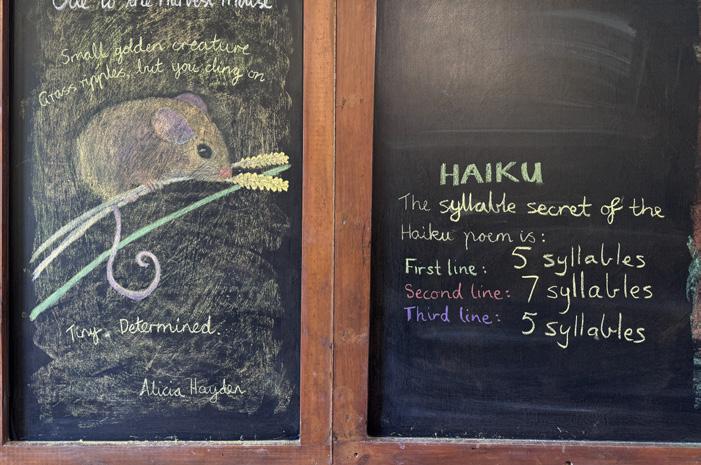 Ode to the Harvest Mouse
Small golden creature
Grass ripples, but you cling on
Tiny. Determined.
Alicia Hayden
HAIKU
The syllable secret of the
Haiku poem is:
First line: 5 syllables
Second line: 7 syllables
Third line: 5 syllables